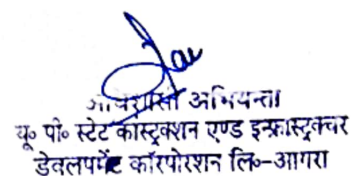 अधिशासी अभियन्ता
यू० पी० स्टेट कांस्ट्रक्शन एण्ड इन्फ्रास्ट्रक्चर
डेवलपमेंट कॉरपोरशन लि०-आगरा